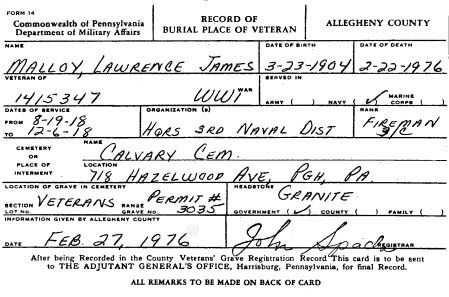 FORM 14
Commonwealth of Pennsylvania
Department of Military Affairs
RECORD OF
BURIAL PLACE OF VETERAN
ALLEGHENY COUNTY
NAME DATE OF BIRTH DATE OF DEATH
MALLOY, LAWRENCE JAMES 3-23-1904 2-22-1976
VETERAN OF WAR SERVED IN
1415347 WW1 ARMY ( ) NAVY (✓) MARINE CORPS ( )
DATES OF SERVICE ORGANIZATION (S) RANK
FROM 8-19-18 HQRS 3RD NAVAL DIST FIREMAN
TO 12-6-18 3/C
CEMETERY OR PLACE OF INTERMENT
NAME
CALVARY CEM.
LOCATION
718 HAZELWOOD AVE, PGH, PA.
LOCATION OF GRAVE IN CEMETERY HEADSTONE
SECTION VETERANS RANGE PERMIT # GRANITE
LOT NO. GRAVE NO. 3035 GOVERNMENT (✓) COUNTY ( ) FAMILY ( )
INFORMATION GIVEN BY ALLEGHENY COUNTY
DATE FEB. 27, 1976 John REGISTRAR
After being Recorded in the County Veterans' Grave Registration Record This card is to be sent
to THE ADJUTANT GENERAL'S OFFICE, Harrisburg, Pennsylvania, for final Record.
ALL REMARKS TO BE MADE ON BACK OF CARD